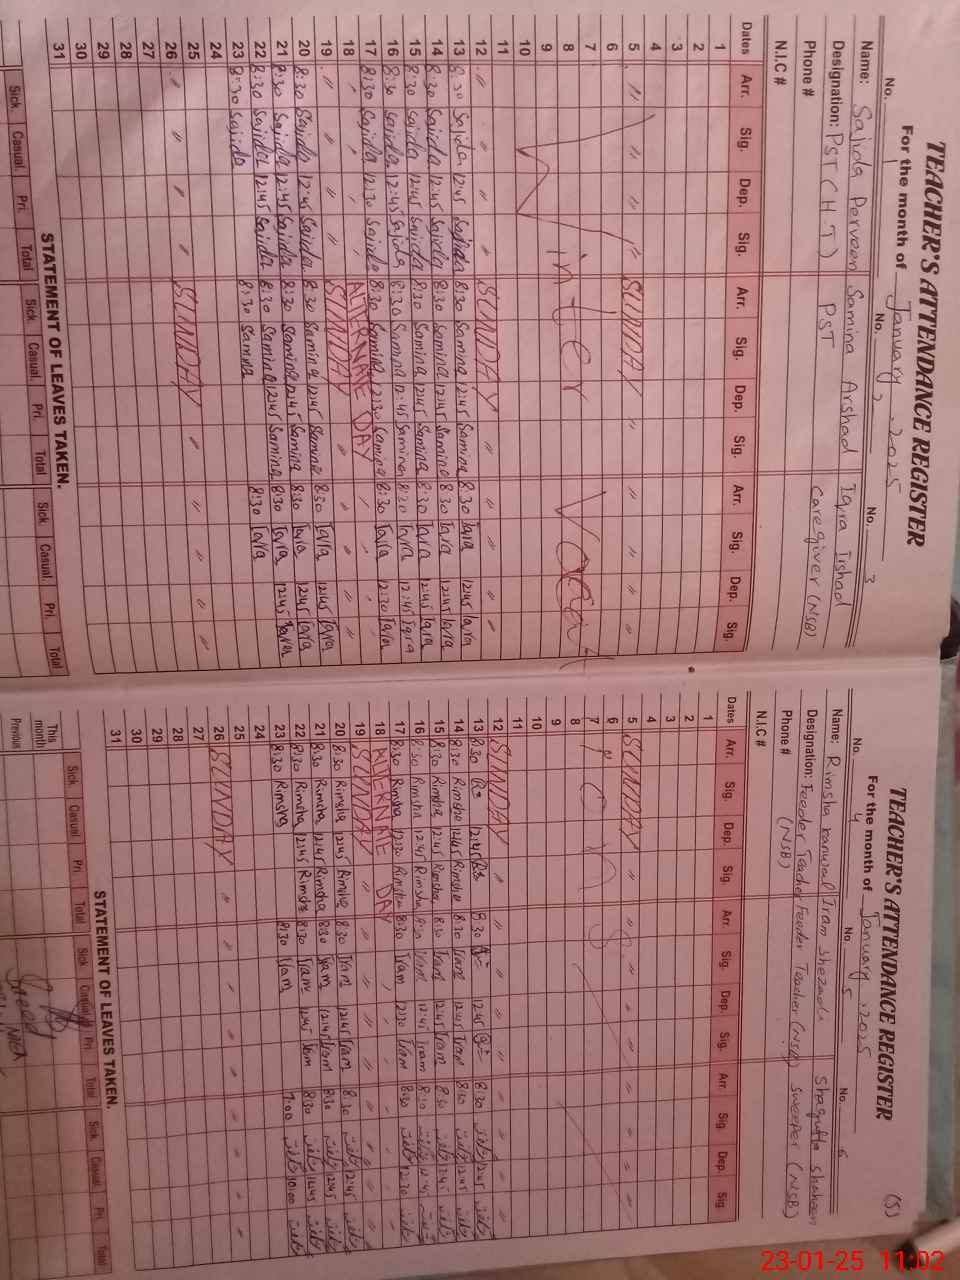 TEACHER'S ATTENDANCE REGISTER
For the month of January, 2025
No. 1 No. 2 No. 3
Name: Sajida Perveen Samina Arshad Iqra Irshad
Designation: PST (H T) PST caregiver (NSB)
Phone #
N.I.C #
Dates Arr. Sig. Dep. Sig. Arr. Sig. Dep. Sig. Arr. Sig. Dep. Sig.
1
2
3
4
5 " " " " SUNDAY " " " "
6
7
8 Winter Vacat
9
10
11
12 " " " " SUNDAY " " " "
13 8:30 Sajida 12:45 Sajida 8:30 Samina 12:45 Samina 8:30 Iqra 12:45 Iqra
14 8:30 Sajida 12:45 Sajida 8:30 Samina 12:45 Samina 8:30 Iqra 12:45 Iqra
15 8:30 Sajida 12:45 Sajida 8:30 Samina 12:45 Samina 8:30 Iqra 12:45 Iqra
16 8:30 Sajida 12:45 Sajida 8:30 Samina 12:45 Samina 8:30 Iqra 12:45 Iqra
17 8:30 Sajida 12:30 Sajida 8:30 Samina 12:30 Samina 8:30 Iqra 12:30 Iqra
18 ALTERNATE DAY
19 " " " " SUNDAY " " "
20 8:30 Sajida 12:45 Sajida 8:30 Samina 12:45 Samina 8:30 Iqra 12:45 Iqra
21 8:30 Sajida 12:45 Sajida 8:30 Samina 12:45 Samina 8:30 Iqra 12:45 Iqra
22 8:30 Sajida 12:45 Sajida 8:30 Samina 12:45 Samina 8:30 Iqra 12:45 Iqra
23 8:30 Sajida 8:30 Samina 8:30 Iqra
24
25
26 " " " " SUNDAY " " " " "
27
28
29
30
31
STATEMENT OF LEAVES TAKEN.
Sick. Casual. Pri. Total Sick. Casual. Pri. Total Sick. Casual. Pri. Total
TEACHER'S ATTENDANCE REGISTER (5)
For the month of January, 2025
No. 4 No. 5 No. 6
Name: Rimsha kanwal Iram Shezadi Shagufta shaheen
Designation: Feeder Teacher Feeder Teacher (NSB) sweeper (NSB)
Phone # (NSB)
N.I.C #
Dates Arr. Sig. Dep. Sig. Arr. Sig. Dep. Sig. Arr. Sig. Dep. Sig.
1
2
3
4
5 SUNDAY " " " " " " "
6
7 ions
8
9
10
11
12 SUNDAY " " " " " "
13 8:30 12:45 8:30 12:45 8:30 شگفتہ 12:45 شگفتہ
14 8:30 Rimsha 12:45 Rimsha 8:30 Iram 12:45 Iram 8:30 شگفتہ 12:45 شگفتہ
15 8:30 Rimsha 12:45 Rimsha 8:30 Iram 12:45 Iram 8:30 شگفتہ 12:45 شگفتہ
16 8:30 Rimsha 12:45 Rimsha 8:30 Iram 12:45 Iram 8:30 شگفتہ 12:45 شگفتہ
17 8:30 Rimsha 12:30 Rimsha 8:30 Iram 12:30 Iram 8:30 شگفتہ 12:30 شگفتہ
18 ALTERNATE DAY
19 SUNDAY " " " " " "
20 8:30 Rimsha 12:45 Rimsha 8:30 Iram 12:45 Iram 8:30 شگفتہ 12:45 شگفتہ
21 8:30 Rimsha 12:45 Rimsha 8:30 Iram 12:45 Iram 8:30 شگفتہ 12:45 شگفتہ
22 8:30 Rimsha 12:45 Rimsha 8:30 Iram 12:45 Iram 8:30 شگفتہ 12:45 شگفتہ
23 8:30 Rimsha 8:30 Iram 7:00 شگفتہ 10:00 شگفتہ
24
25
26 SUNDAY " " " " " "
27
28
29
30
31
STATEMENT OF LEAVES TAKEN.
Sick. Casual Pri. Total Sick. Casual Pri Total Sick. Casual. Pri. Total
This month
Previous
23-01-25 11:02